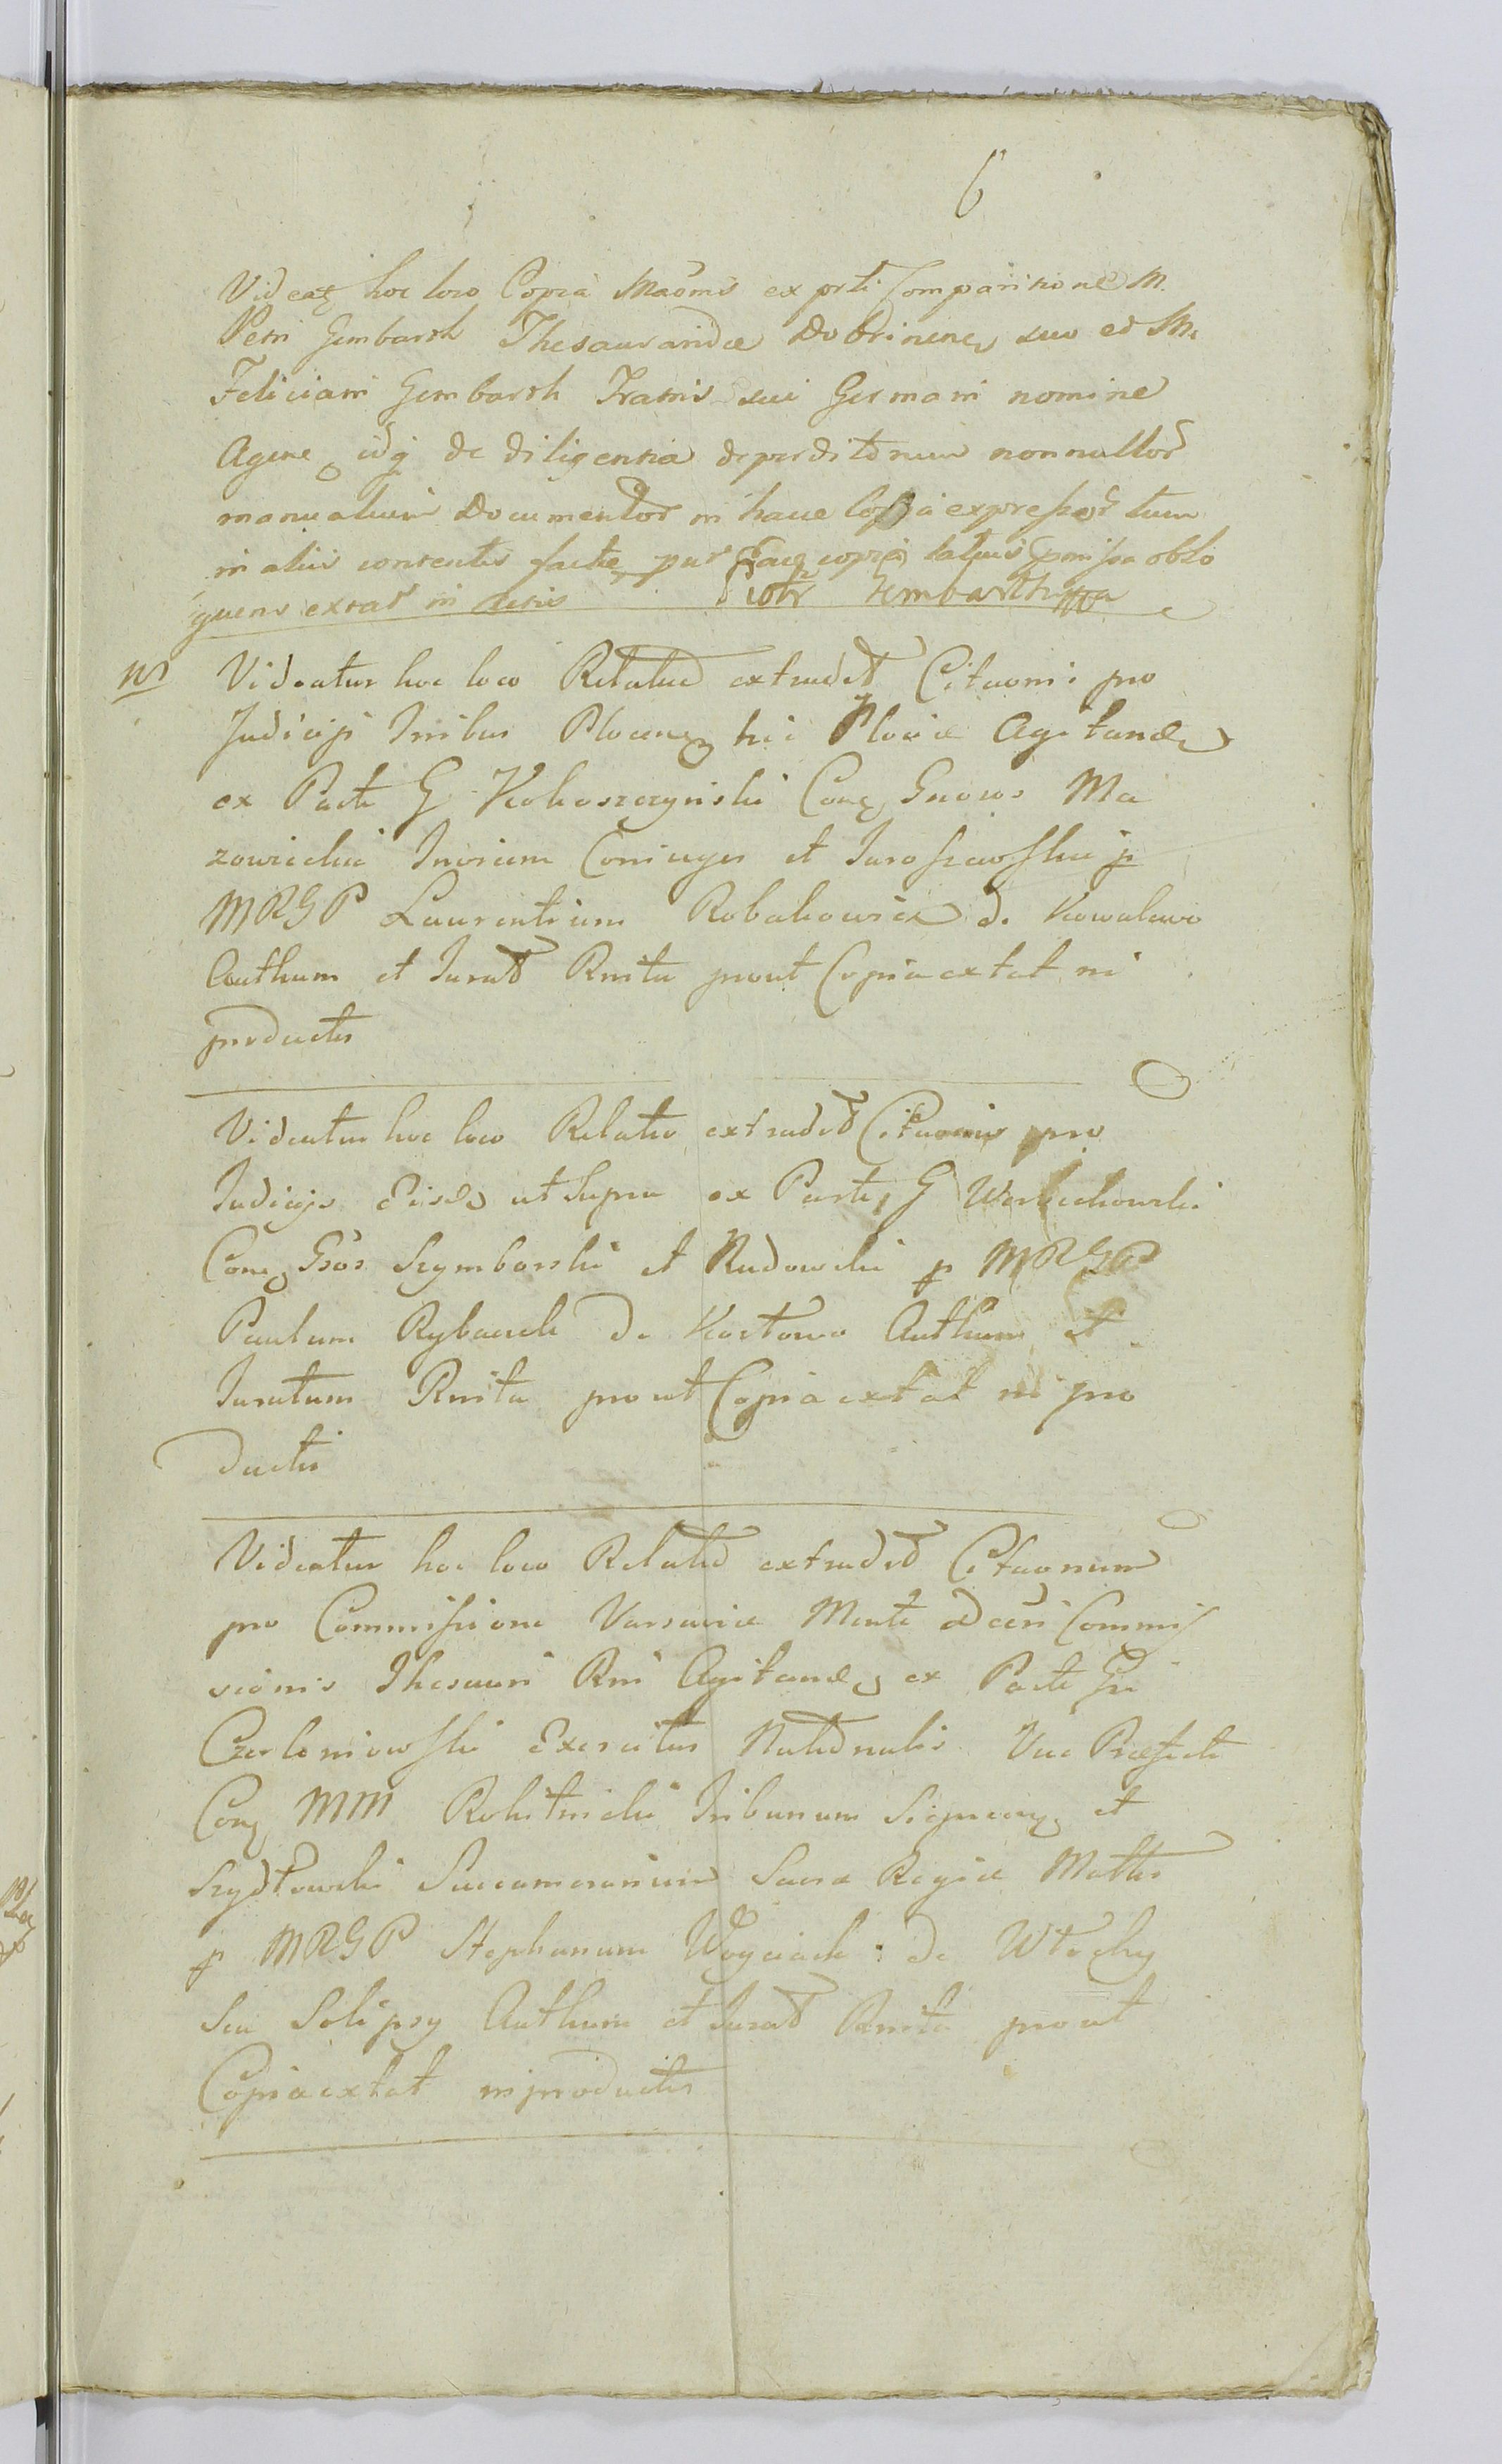 6
Videatz hoc loco Copia Maõnis ex prti Comparitione M.
Petri Gembarth Thesauraridæ Dobrinenę suo ed M.
Feliciani Gembarth Fratris sui Germani nomine
Agene idq de diligentia deperditorum nonnullor
manualium Documentor in hace Copia expressor tum
in aliis contentis factæ, per
quens extat in Actis Piotr Gembarth mpa
Nr Videatur hoc loco Relatio extradit Citaonis pro
Judicijs Tribus Plocenę hic Plociæ Agitandę
ex Parte G Kokoszczynski Conę Gnosos Ma
zowiecki Invicem Coniuges et Jaroszewski p
MRGP Laurentium Robakowicz de Kowalewo
Authum et Jurat Rnita prout Copia extat in
productis
Videatur hoc loco Relatio extradit Citaonis pro
Judicijs Eisdę ut Supra ex Parte G
Conę Gsos Szymborski et Rudowski p MRGP
Paulum Rybacik de Kostowo Authum et
Juratum Rnita prout Copia extat in pro
ductis
Videatur hoc loco Relatio extradit Citaonum
pro Commissione Varsaviæ Mente Decri Commis
sionis Thesauri Rni Agitandę ex Parte Gsi
Czerloniowski Exercitus Nationalis Vice Præfecti
Conę MM Rokitnicki Tribunum et
Szydłowski Succamerarium Sacræ Regiæ Mattis
p MRGP Stephanum Woyciack de Włochy
seu Solipsy Authum et Jurat Rnita prout
Copia extat in productis